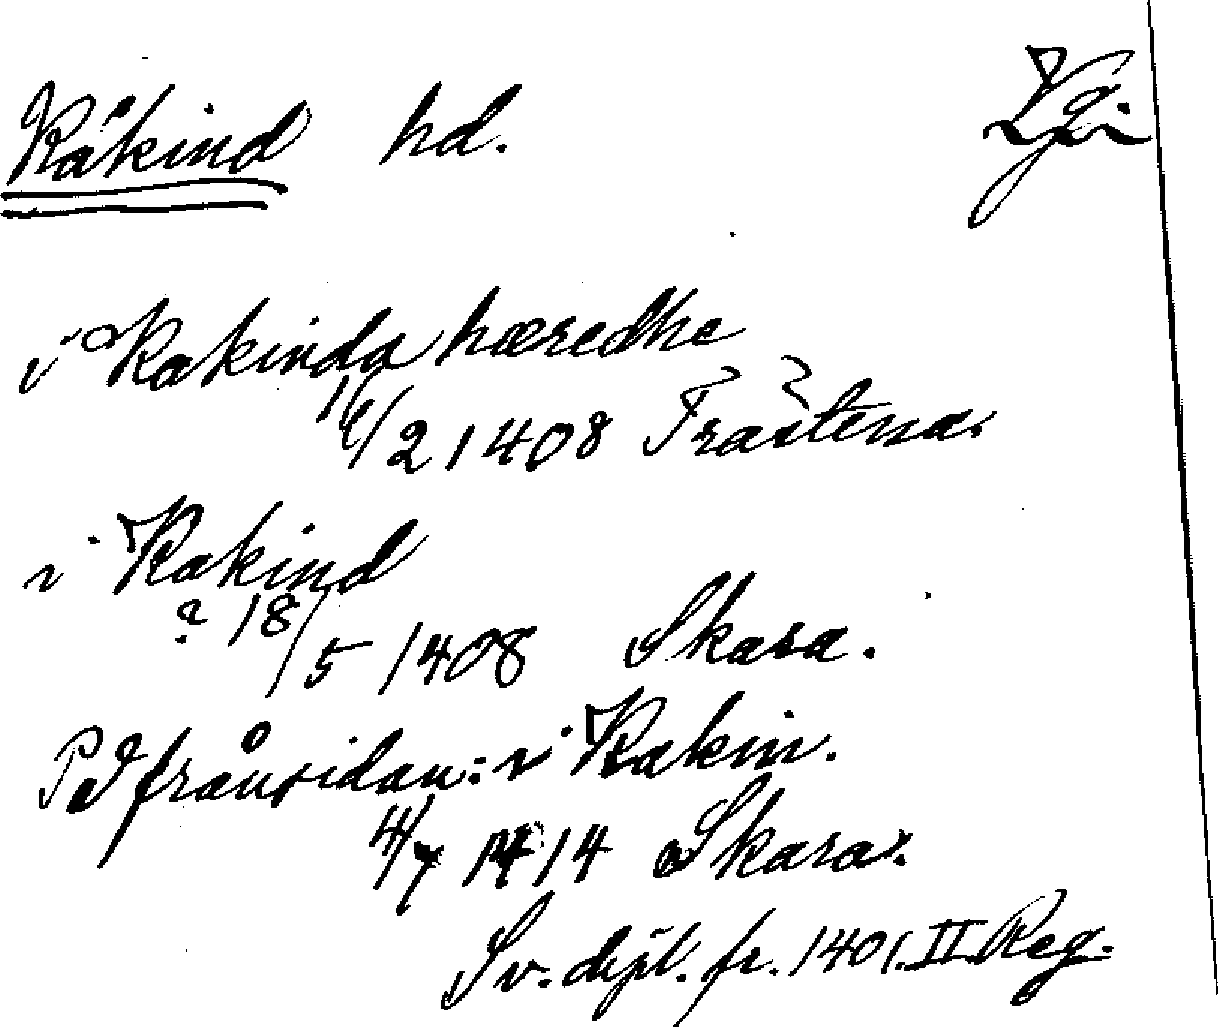 Kåkind hd. Vg.
i Kakinda hæredhe
16/2 1408 Fraastena.
i Kakind
? 18/5 1408 Skara.
På frånsidan: i Kakin.
4/7 1414 Skara.
Sv. dipl. fr. 1401. II. Reg.